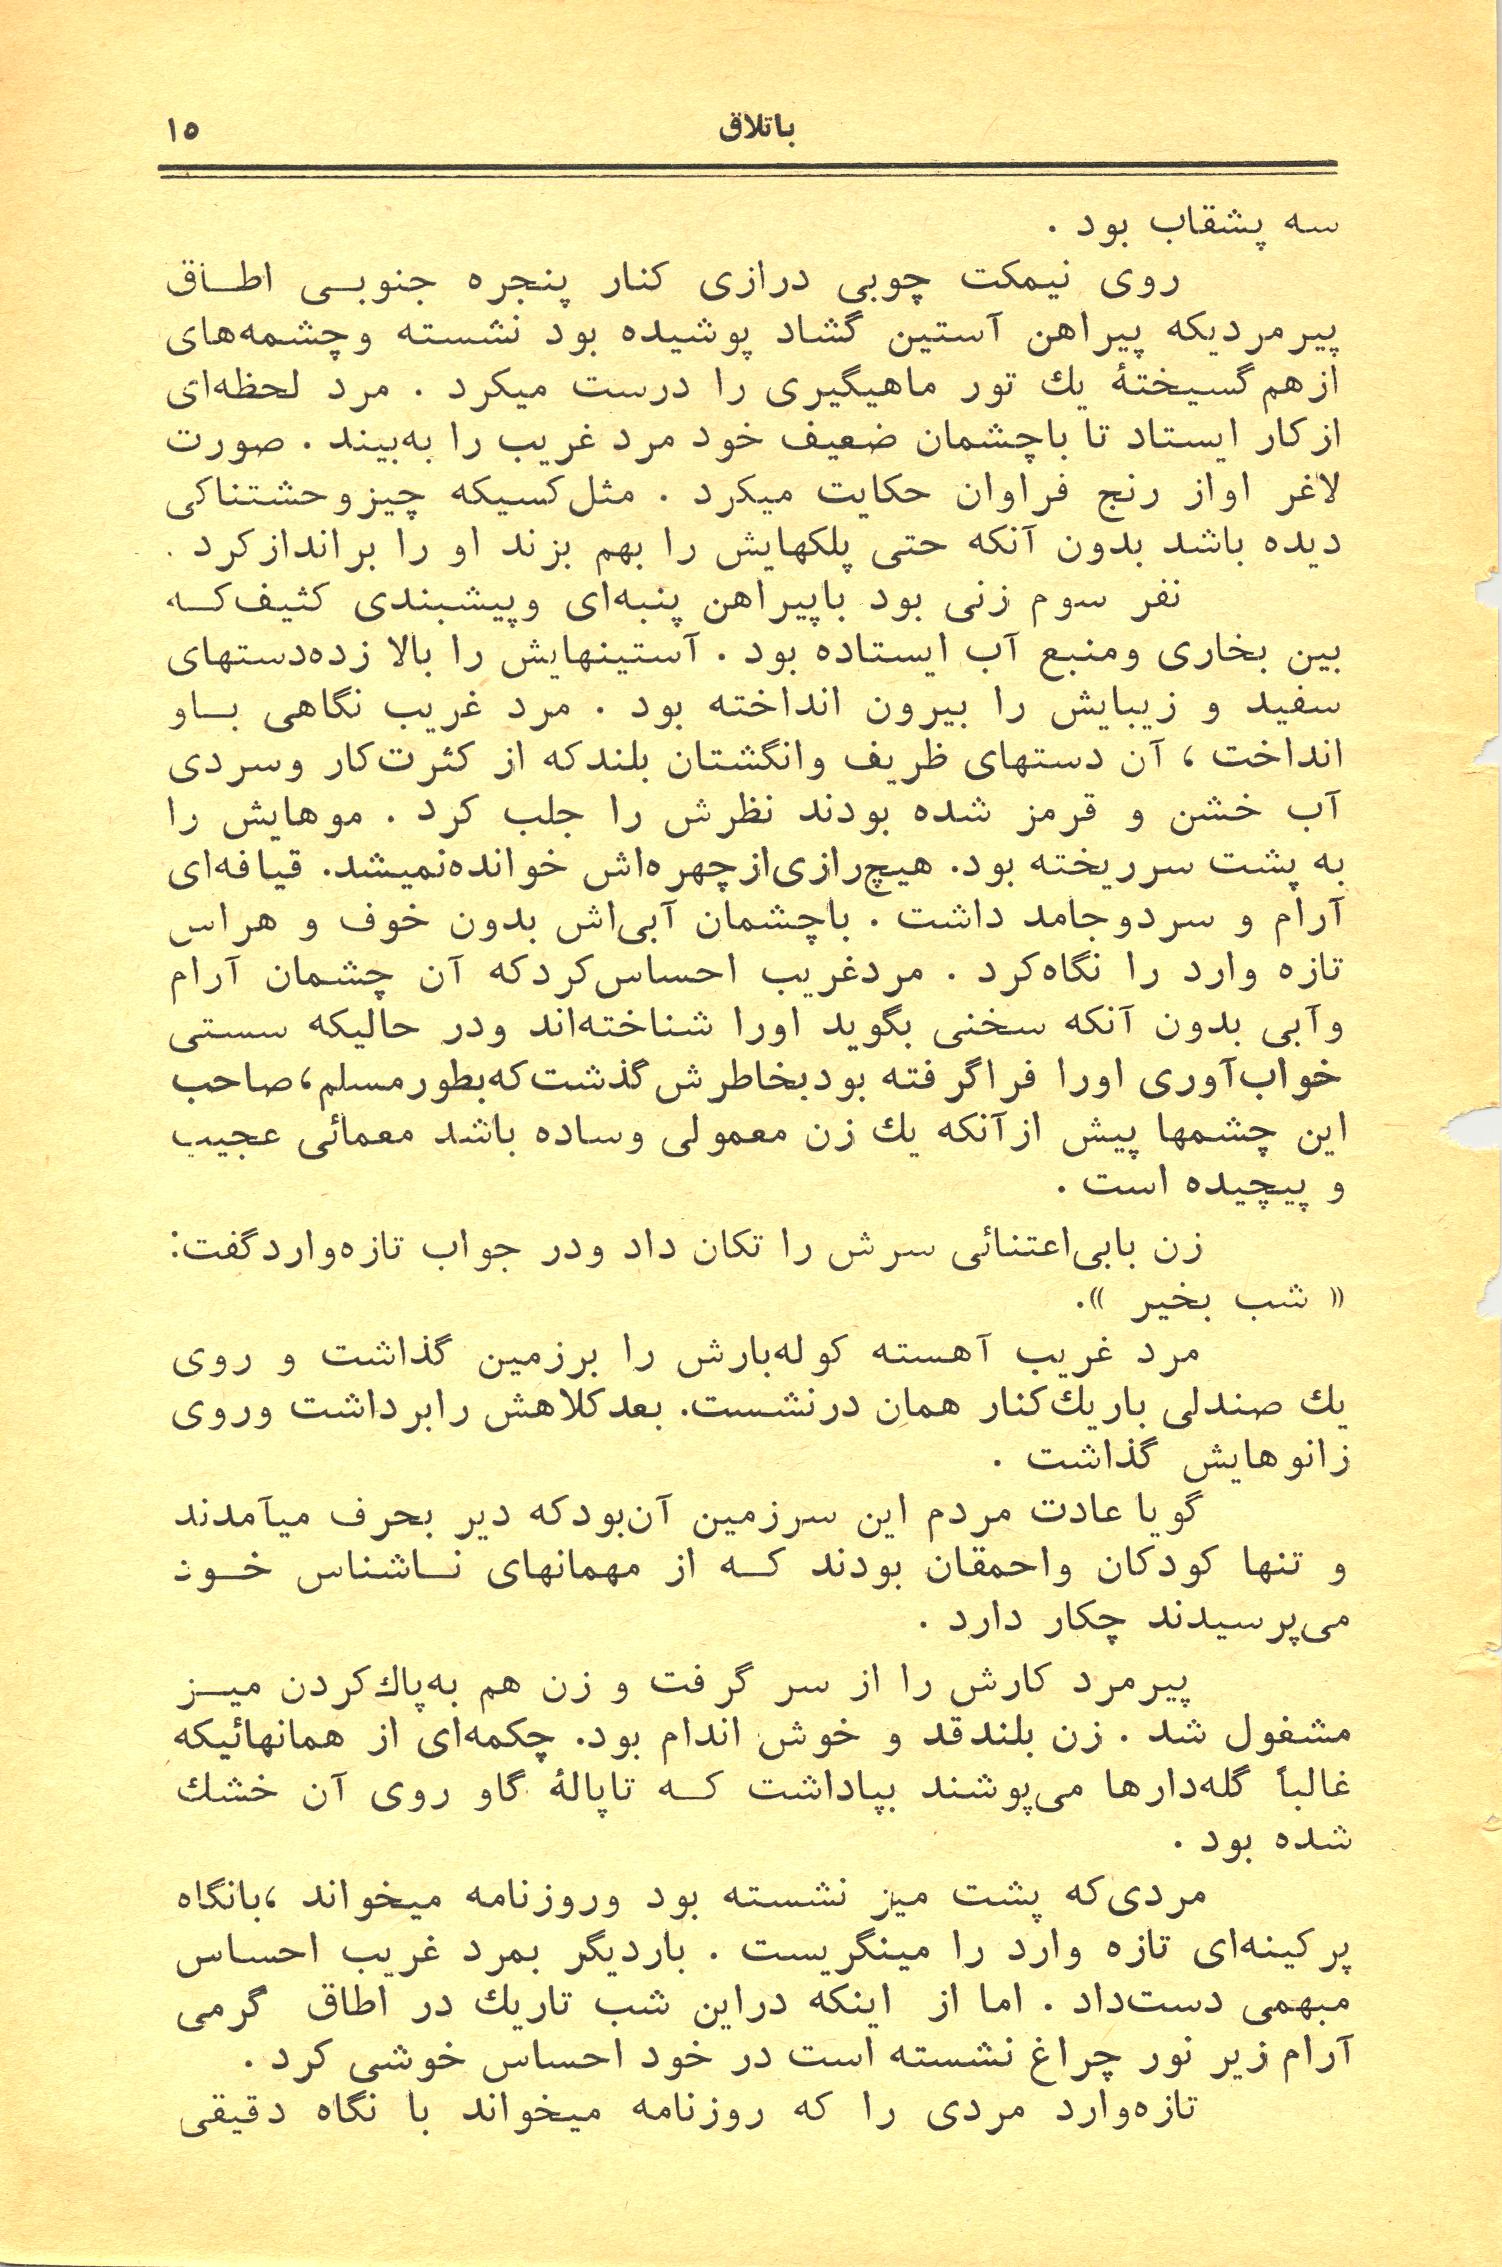 باتلاق ۱۵
سه پشقاب بود .
روی نیمکت چوبی درازی کنار پنجره جنوبی اطاق
پیرمردیکه پیراهن آستین گشاد پوشیده بود نشسته وچشمه‌های
ازهم گسیختهٔ یك تور ماهیگیری را درست میکرد . مرد لحظه‌ای
ازکار ایستاد تا باچشمان ضعیف خود مرد غریب را به‌بیند . صورت
لاغر اواز رنج فراوان حکایت میکرد . مثل کسیکه چیزوحشتناکی
دیده باشد بدون آنکه حتی پلکهایش را بهم بزند او را براندازکرد .
نفر سوم زنی بود باپیراهن پنبه‌ای وپیشبندی کثیف که
بین بخاری ومنبع آب ایستاده بود . آستینهایش را بالا زده‌دستهای
سفید و زیبایش را بیرون انداخته بود . مرد غریب نگاهی باو
انداخت ، آن دستهای ظریف وانگشتان بلندکه از کثرت‌کار وسردی
آب خشن و قرمز شده بودند نظرش را جلب کرد . موهایش را
به پشت سرریخته بود. هیچ‌رازی‌ازچهره‌اش خوانده‌نمیشد. قیافه‌ای
آرام و سردوجامد داشت . باچشمان آبی‌اش بدون خوف و هراس
تازه وارد را نگاه‌کرد . مردغریب احساس‌کردکه آن چشمان آرام
وآبی بدون آنکه سخنی بگوید اورا شناخته‌اند ودر حالیکه سستی
خواب‌آوری اورا فراگرفته بودبخاطرش گذشت‌که‌بطورمسلم، صاحب
این چشمها پیش ازآنکه یك زن معمولی وساده باشد معمائی عجیب
و پیچیده است .
زن بابی‌اعتنائی سرش را تکان داد ودر جواب تازه‌واردگفت:
« شب بخیر ».
مرد غریب آهسته کوله‌بارش را برزمین گذاشت و روی
یك صندلی باریك‌کنار همان درنشست. بعدکلاهش رابرداشت وروی
زانوهایش گذاشت .
گویا عادت مردم این سرزمین آن‌بودکه دیر بحرف میآمدند
و تنها کودکان واحمقان بودند که از مهمانهای ناشناس خود
می‌پرسیدند چکار دارد .
پیرمرد کارش را از سر گرفت و زن هم به‌پاك‌کردن میز
مشغول شد . زن بلندقد و خوش اندام بود. چکمه‌ای از همانهائیکه
غالباً گله‌دارها می‌پوشند بپاداشت که تاپالهٔ گاو روی آن خشك
شده بود .
مردی‌که پشت میز نشسته بود وروزنامه میخواند ،بانگاه
پرکینه‌ای تازه وارد را مینگریست . باردیگر بمرد غریب احساس
مبهمی دست‌داد . اما از اینکه دراین شب تاریك در اطاق گرمی
آرام زیر نور چراغ نشسته است در خود احساس خوشی کرد .
تازه‌وارد مردی را که روزنامه میخواند با نگاه دقیقی